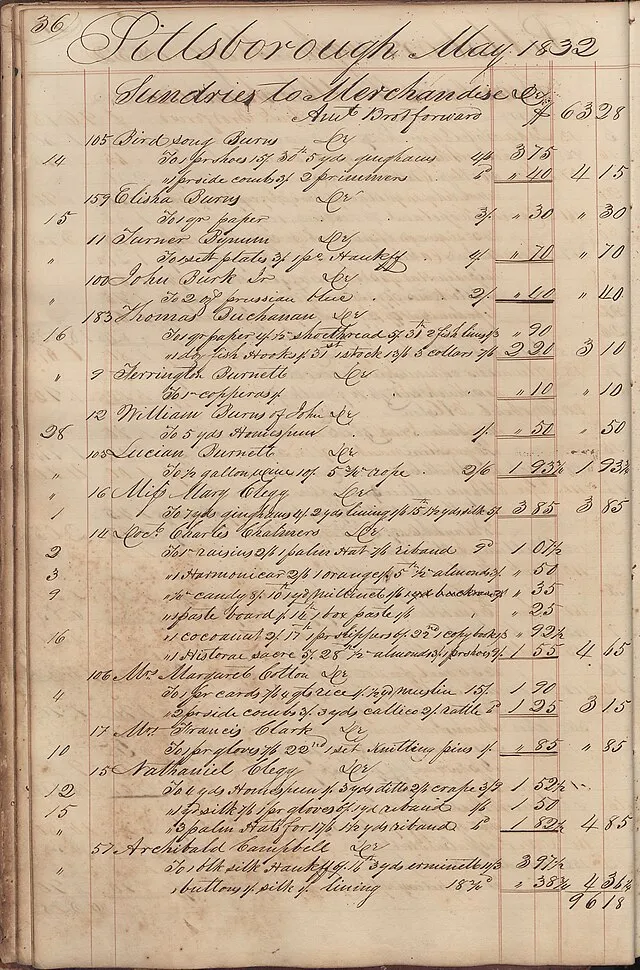 36
Pittsborough May 1832
Sundries to Merchandise Dr
Amt Brot forward $ 63 28
105 Bird song Burns Dr
14 To 1 pr shoes 15/ 30th 5 yds ginghams 4/6 3 75
" 1 pr side combs 3/ 2 primmers 6d " 40 4 15
159 Elisha Burns Dr
15 To 1 qr paper 3/ " 30 " 30
11 Turner Bynum Dr
" To 1 sett plates 3/ 1 pc Hankff 4/ " 70 " 70
100 John Burk Jr Dr
" To 2 oz prussian blue 2/ " 40 " 40
183 Thomas Buchanan Dr
16 To 1 qr paper shoethread 31st 2 fish lines " 90
" 1 doz fish Hooks 31st 1 stock 5 collars 2 20 3 10
" 9 Terrington Burnett Dr
To 1 copperas " 10 " 10
12 William Burns of John Dr
28 To 5 yds Homespun 1/ " 50 " 50
103 Lucian Burnett Dr
" To ½ gallon wine 10/ 5 rope 2/6 1 93¾ 1 93¾
" 16 Miss Mary Clegg Dr
1 To 7 yds ginghams 2 yds lining 15th 1½ yds silk 5/ 3 85 3 85
14 Doct Charles Chalmers Dr
2 To raisins 2/ 1 palm Hat riband 9d 1 07½
3 " 1 Harmonicar 2/6 1 orange 5th ½ almonds " 50
9 " candy 8/ 10th 1 yd millinet 1 yd " 35
" paste board 14th 1 box paste " 25
16 " 1 cocoanut 2/ 17th 1 pr slippers 22nd 1 copy book " 92½
" 1 Historae sacre 28th ½ almonds 1 pr shoes 1 55 4 65
106 Mrs Margaret Cotton Dr
4 To 1 pr cards rice ½ yd muslin 15/ 1 90
" 2 pr side combs 3/ 3 yds callico 2/ rattle 6d 1 25 3 15
17 Mrs Francis Clark Dr
10 To 1 pr gloves 22nd 1 set Knitting pins 1/ " 85 " 85
15 Nathaniel Clegg Dr
12 To 4 yds Homespun 3 yds ditto crape 3/9 1 52½
15 " 1 yd silk 1 pr gloves 1 yd riband 1/6 1 50
" " 3 palm Hats for 1½ yds riband 6d 1 82½ 4 85
57 Archibald Campbell Dr
" To 1 blk silk Hankff 3 yds erminett 3 97½
" buttons silk lining 18¾d " 38¾ 4 36¼
96 18